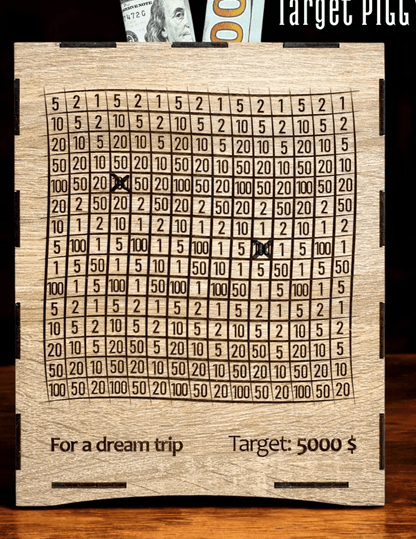 Target PIGG
5 2 1 5 2 1 5 2 1 5 2 1 5 2 1
10 5 2 10 5 2 10 5 2 10 5 2 10 5 2
20 10 5 20 10 5 20 10 5 20 10 5 20 10 5
50 20 10 50 20 10 50 20 10 50 20 10 50 20 10
100 50 20 50 20 100 50 20 100 50 20 100 50 20
20 2 50 20 2 50 20 2 50 20 2 50 20 2 50
10 1 2 10 1 2 10 1 2 10 1 2 10 1 2
5 100 1 5 100 1 5 100 1 5 1 5 100 1
5 2 1 5 2 1 5 2 1 5 2 1 5 2 1
10 5 2 10 5 2 10 5 2 10 5 2 10 5 2
20 10 5 20 10 5 20 10 5 20 10 5 20 10 5
50 20 10 50 20 10 50 20 10 50 20 10 50 20 10
100 50 20 100 50 20 100 50 20 100 50 20 100 50 20
For a dream trip Target: 5000 $